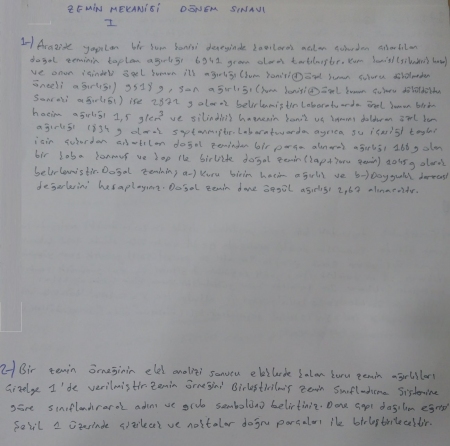 ZEMİN MEKANİĞİ DÖNEM SINAVI
I
1-) Arazide yapılan bir kum konisi deneyinde kazılarak açılan çukurdan çıkartılan
doğal zeminin toplam ağırlığı 6942 gram olarak tartılmıştır. Kum konisi
ve onun içindeki özel kumun ilk ağırlığı (kum konisi + özel kumun çukura dökülmeden
önceki ağırlığı) g, son ağırlığı (kum konisi + özel kumun çukura döküldükten
sonraki ağırlığı) ise g olarak belirlenmiştir. Laboratuvarda özel kumun birim
hacim ağırlığı 1,5 g/cm³ ve silindirik haznenin konik ve tamamı dolduran özel kum
ağırlığı g olarak saptanmıştır. Laboratuvarda ayrıca su içeriği tayini
için çukurdan çıkartılan doğal zeminden bir parça alınarak ağırlığı g olan
bir kaba konmuş ve kap ile birlikte doğal zemin (kap+kuru zemin) g olarak
belirlenmiştir. Doğal zeminin, a-) Kuru birim hacim ağırlık ve b-) Doygunluk derecesi
değerlerini hesaplayınız. Doğal zemin dane özgül ağırlığı 2,67 alınacaktır.
2-) Bir zemin örneğinin elek analizi sonucu eleklerde kalan kuru zemin ağırlıkları
Çizelge 1'de verilmiştir. Zemin örneğini Birleştirilmiş Zemin Sınıflandırma Sistemine
göre sınıflandırarak adını ve grup sembolünü belirtiniz. Dane çapı dağılım eğrisi
Şekil 1 üzerinde çizilecek ve noktalar doğru parçaları ile birleştirilecektir.